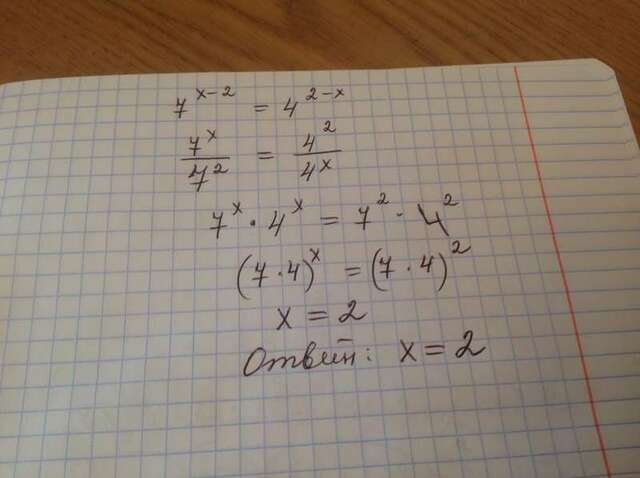 7^{x-2} = 4^{2-x}
\frac{7^x}{7^2} = \frac{4^2}{4^x}
7^x · 4^x = 7^2 · 4^2
(7 · 4)^x = (7 · 4)^2
x = 2
Ответ: x = 2